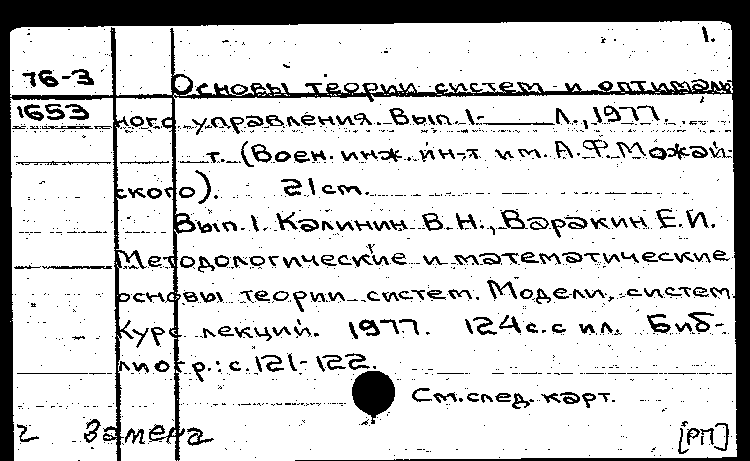 1.
76-3 Основы теории систем и оптималь
1653 ного управления. Вып. 1- Л., 1977.
т. (Воен. инж. ин-т им. А.Ф. Можай-
ского). 21 cm.
Вып. 1. Калинин В.Н., Варакин Е.И.
Методологические и математические
основы теории систем. Модели систем.
Курс лекций. 1977. 124 с. с ил. Биб-
лиогр.: с. 121-122.
См. след. карт.
г Замена [РП]